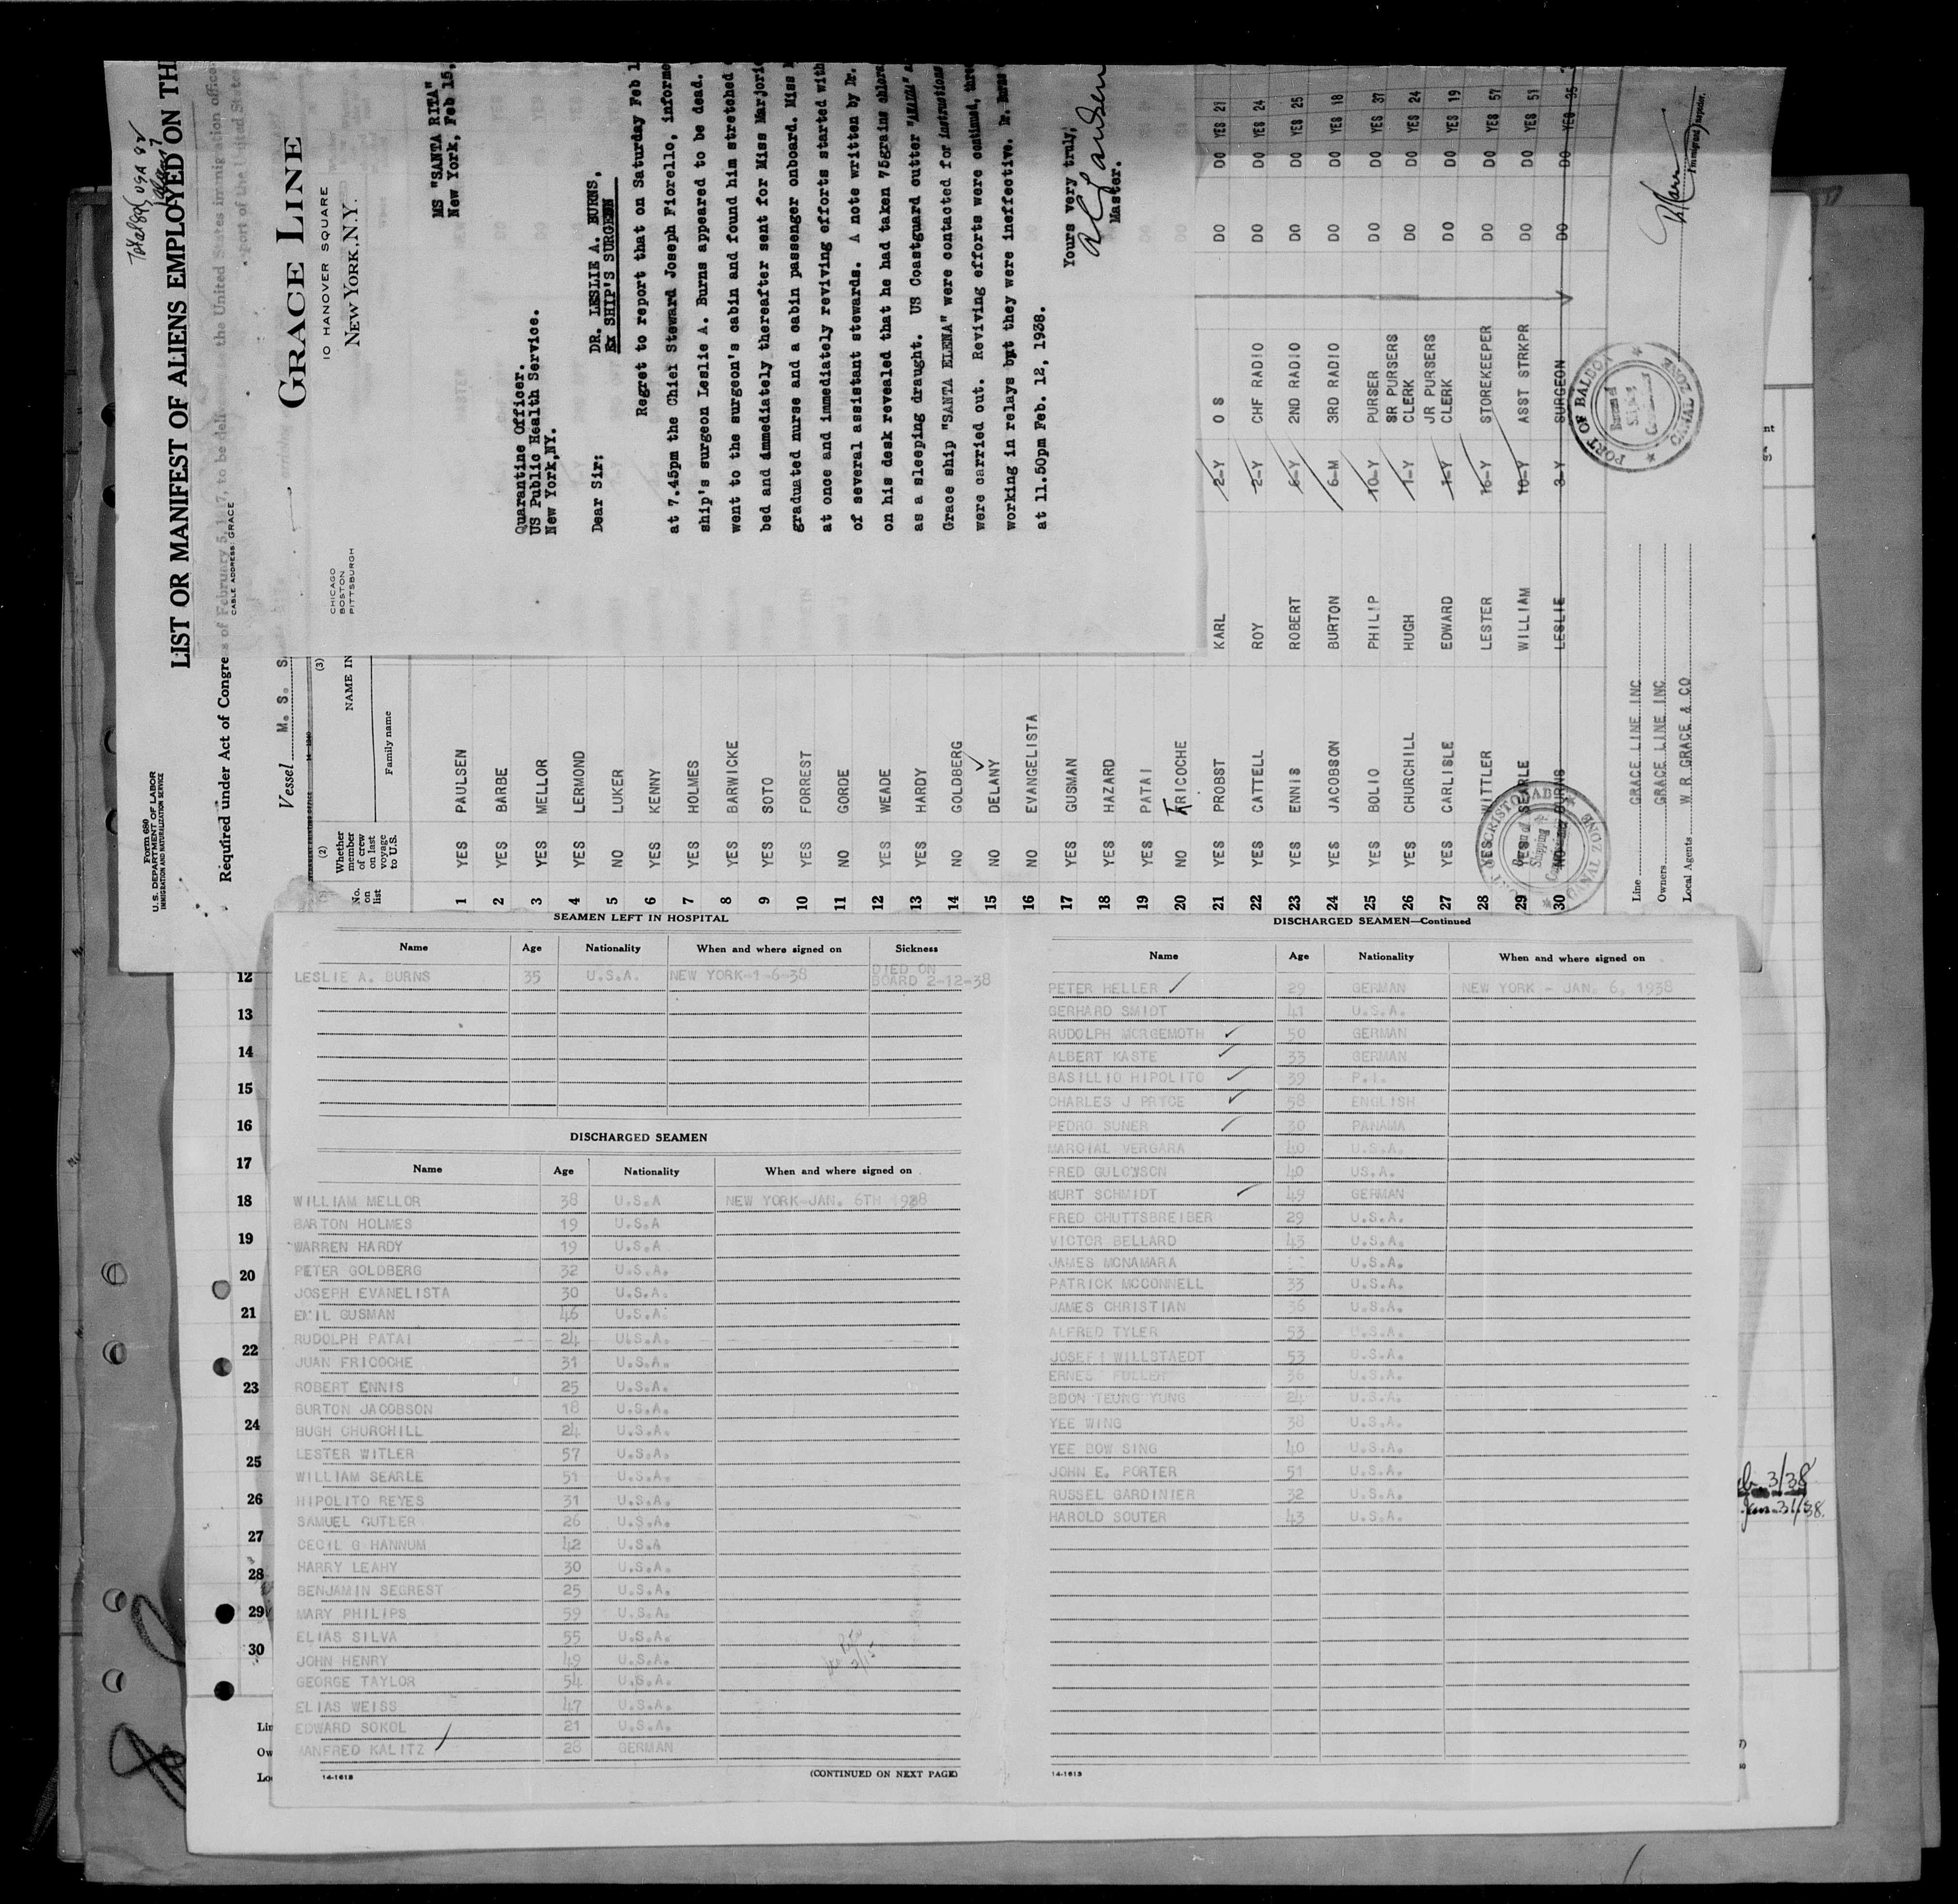 Form 680
U. S. DEPARTMENT OF LABOR
IMMIGRATION AND NATURALIZATION SERVICE
LIST OR MANIFEST OF ALIENS EMPLOYED ON TH
Required under Act of Congre
s of February 5, 1917, to be deli
the United States immigration office
port of the United State
Vessel M. S. S
GRACE LINE
10 HANOVER SQUARE
NEW YORK, N.Y.
CABLE ADDRESS: GRACE
CHICAGO
BOSTON
PITTSBURGH
MS "SANTA RITA"
New York, Feb 15,
Quarantine Officer.
US Public Health Service.
New York,NY.
DR. LESLIE A. BURNS,
Ex SHIP'S SURGEON
Dear Sir:
Regret to report that on Saturday Feb 1
at 7.45pm the Chief Steward Joseph Fiorello, informe
ship's surgeon Leslie A. Burns appeared to be dead.
went to the surgeon's cabin and found him stretched
bed and immediately thereafter sent for Miss Marjori
graduated nurse and a cabin passenger onboard. Miss
at once and immediately reviving efforts started with
of several assistant stewards. A note written by Dr.
on his desk revealed that he had taken 75grains chlora
as a sleeping draught. US Coastguard cutter
Grace ship "SANTA ELENA" were contacted for instructions
were carried out. Reviving efforts were continued, thre
working in relays but they were ineffective. Dr. Burns
at 11.50pm Feb. 12, 1938.
Yours very truly,
Master.
(2)
(3)
No. on list
Whether member of crew on last voyage to U.S.
NAME IN
Family name
1 YES PAULSEN
2 YES BARBE
3 YES MELLOR
4 YES LERMOND
5 NO LUKER
6 YES KENNY
7 YES HOLMES
8 YES BARWICKE
9 YES SOTO
10 YES FORREST
11 NO GORDE
12 YES WEADE
13 YES HARDY
14 NO GOLDBERG
15 NO DELANY
16 NO EVANGELISTA
17 YES GUSMAN
18 YES HAZARD
19 YES PATAI
20 NO TRICOCHE
21 YES PROBST KARL 2-Y O S DO DO YES 21
22 YES CATTELL ROY 2-Y CHF RADIO DO DO YES 24
23 YES ENNIS ROBERT 6-Y 2ND RADIO DO DO YES 25
24 YES JACOBSON BURTON 6-M 3RD RADIO DO DO YES 18
25 YES BOLIO PHILIP 10-Y PURSER DO DO YES 37
26 YES CHURCHILL HUGH 1-Y SR PURSERS CLERK DO DO YES 24
27 YES CARLISLE EDWARD 1-Y JR PURSERS CLERK DO DO YES 19
28 YES WITTLER LESTER 16-Y STOREKEEPER DO DO YES 57
29 YES SEARLE WILLIAM 10-Y ASST STRKPR DO DO YES 51
30 NO BURNS LESLIE 3-Y SURGEON DO DO YES 35
PORT OF BALBOA
CANAL ZONE
PORT CRISTOBAL
CANAL ZONE
Line GRACE LINE INC
Owners GRACE LINE INC
Local Agents W R GRACE & CO
Immigrant Inspector.
SEAMEN LEFT IN HOSPITAL
Name Age Nationality When and where signed on Sickness
LESLIE A. BURNS 35 U.S.A. NEW YORK-1-6-38 DIED ON BOARD 2-12-38
DISCHARGED SEAMEN
Name Age Nationality When and where signed on
WILLIAM MELLOR 38 U.S.A NEW YORK-JAN. 6TH 1938
BARTON HOLMES 19 U.S.A
WARREN HARDY 19 U.S.A
PETER GOLDBERG 32 U.S.A.
JOSEPH EVANELISTA 30 U.S.A.
EMIL GUSMAN 46 U.S.A.
RUDOLPH PATAI 24 U.S.A.
JUAN FRICOCHE 31 U.S.A.
ROBERT ENNIS 25 U.S.A.
BURTON JACOBSON 18 U.S.A.
BUGH CHURCHILL 24 U.S.A.
LESTER WITLER 57 U.S.A.
WILLIAM SEARLE 51 U.S.A.
HIPOLITO REYES 31 U.S.A.
SAMUEL CUTLER 26 U.S.A.
CECIL G HANNUM 42 U.S.A
HARRY LEAHY 30 U.S.A.
BENJAMIN SEGREST 25 U.S.A.
MARY PHILIPS 59 U.S.A.
ELIAS SILVA 55 U.S.A.
JOHN HENRY 49 U.S.A.
GEORGE TAYLOR 54 U.S.A.
ELIAS WEISS 47 U.S.A.
EDWARD SOKOL 21 U.S.A.
MANFRED KALITZ 28 GERMAN
14-1613
(CONTINUED ON NEXT PAGE)
DISCHARGED SEAMEN—Continued
Name Age Nationality When and where signed on
PETER HELLER 29 GERMAN NEW YORK - JAN. 6, 1938
GERHARD SMIDT 41 U.S.A.
RUDOLPH MORGEMOTH 50 GERMAN
ALBERT KASTE 33 GERMAN
BASILLIO HIPOLITO 39 P.I.
CHARLES J PRYCE 58 ENGLISH
PEDRO SUNER 30 PANAMA
MARCIAL VERGARA 40 U.S.A.
FRED GULOWSON 40 US.A.
KURT SCHMIDT 49 GERMAN
FRED CHUTTSBREIBER 29 U.S.A.
VICTOR BELLARD 43 U.S.A.
JAMES MCNAMARA U.S.A.
PATRICK MCCONNELL 33 U.S.A.
JAMES CHRISTIAN 36 U.S.A.
ALFRED TYLER 53 U.S.A.
JOSEF WILLSTAEDT 53 U.S.A.
ERNES FULLER 36 U.S.A.
BOON TEUNG YUNG 24 U.S.A.
YEE WING 38 U.S.A.
YEE BOW SING 40 U.S.A.
JOHN E. PORTER 51 U.S.A.
RUSSEL GARDINIER 32 U.S.A.
HAROLD SOUTER 43 U.S.A.
14-1613
12
13
14
15
16
17
18
19
20
21
22
23
24
25
26
27
28
29
30
Lin
Ow
Lo
3/38
Jan 31/38.